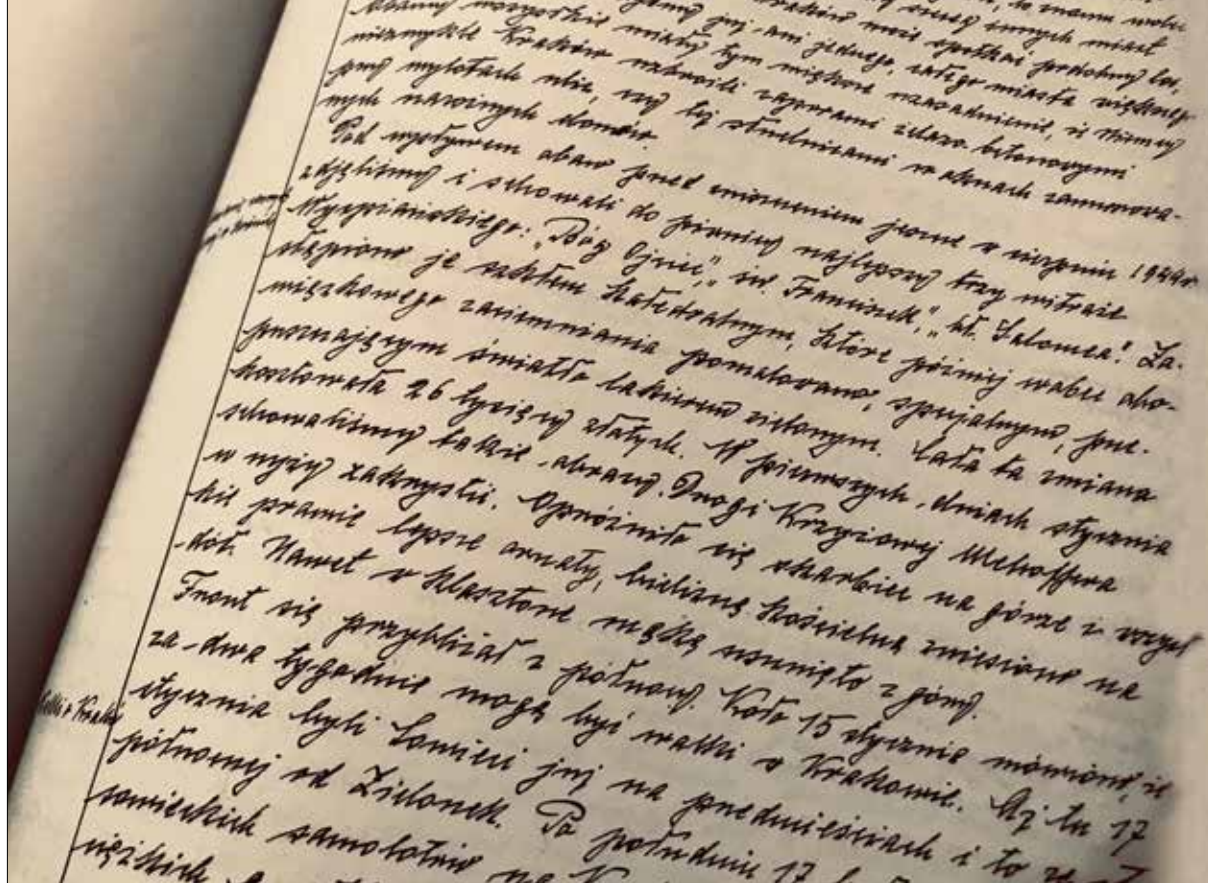 to znamu
innych miast
Kraków może spotkać podobny los,
już ani jednego, całego miasta większego
Obawy wszystkie miały tym większe uzasadnienie, iż Niemcy
niezwykle Kraków uzbroili zaporami żelazo-betonowymi
przy wylotach ulic, czy też strzelnicami w oknach zamurowa-
nych narożnych domów.
Pod wpływem obaw przed zniszczeniem jeszcze w sierpniu 1944 r.
zdjęliśmy i schowali do piwnicy najlepszy trzy witraże
Wyspiańskiego: „Bóg Ojciec", „św. Franciszek", „bł. Salomea". Za-
stąpiono je szkłem katedralnym, które później wobec obo-
wiązkowego zaciemniania pomalowano, specjalnym, prze-
puszczającym światło lakierem zielonym. Cała ta zmiana
kosztowała 26 tysięcy złotych. W pierwszych dniach stycznia
schowaliśmy także obrazy Drogi Krzyżowej Mehoffera
w niży zakrystii. Opróżniło się skarbiec na górze i wszyst-
kie prawie lepsze ornaty, bieliznę kościelną zniesiono na
dół. Nawet w klasztorze mąkę usunięto z góry.
Front się przybliżał z północy. Koło 15 stycznia mówiono, iż
za dwa tygodnie mogą być walki o Kraków. Aż tu 17
stycznia byli Sowieci już na przedmieściach i to ze st
północnej od Zielonek. Po południu 17
sowieckich samolotów na
ciężkich